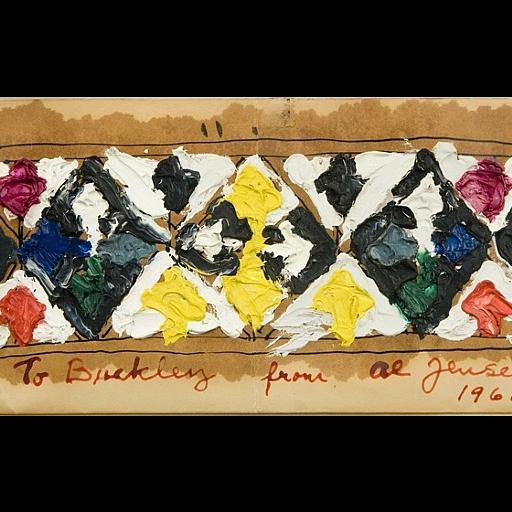 To Buckley from Al Jense
196